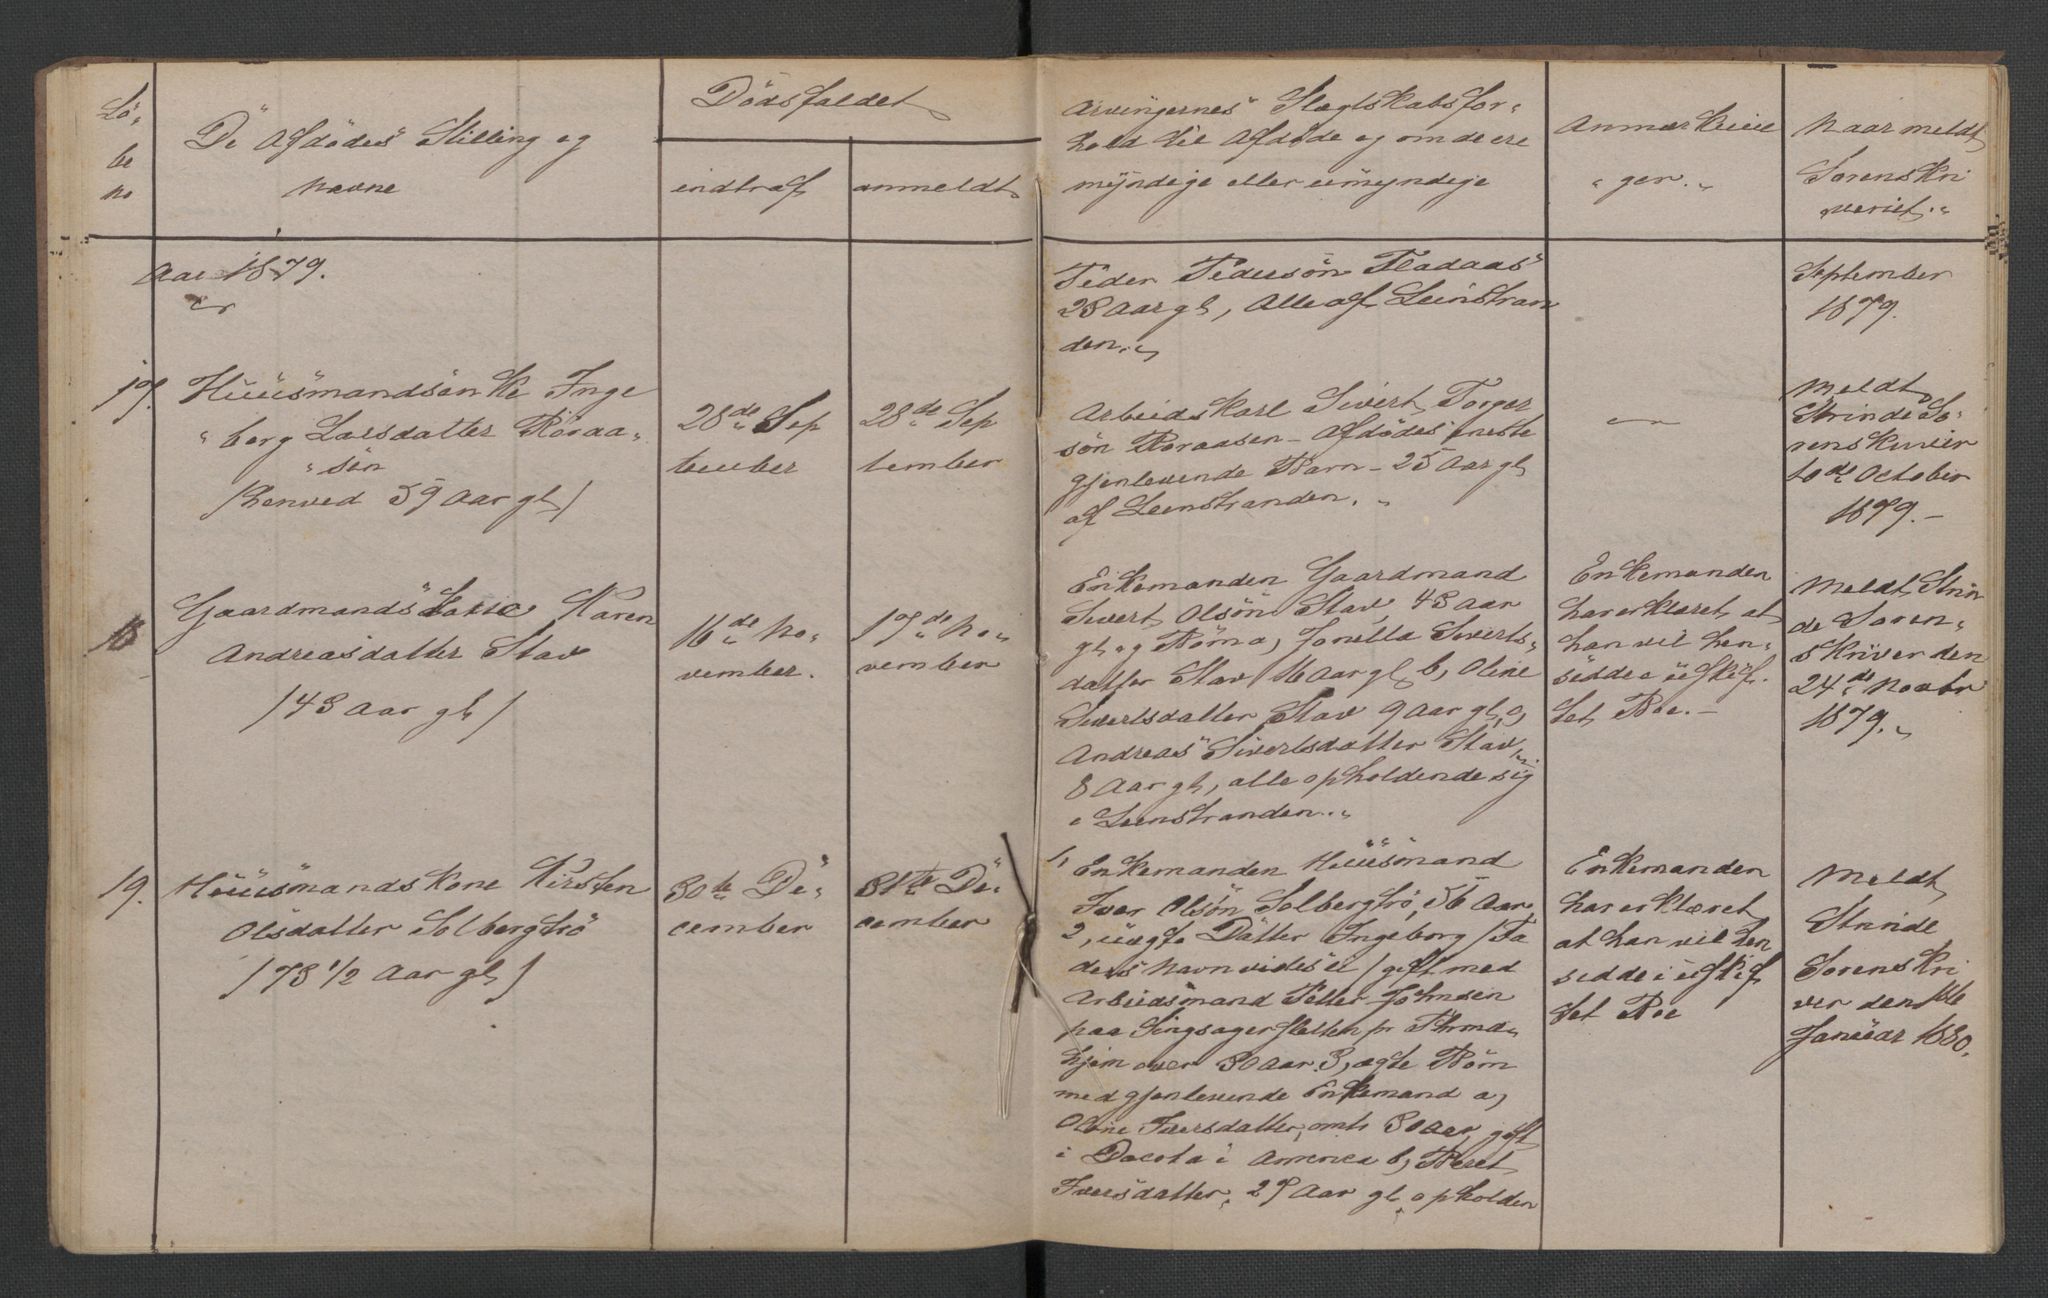 Lö-
be
no
De Afdödes Stilling og
Navne
Dödsfaldet
indtraf
anmeldt
Arvingernes Slægtskabsfor-
hold til Afdöde og om de ere
myndige eller umyndige
Anmærknin
ger.
Naar meldt
Sorenskri
veriet.
Aar 1879.
Peder Pedersön Fladaas
28 Aar gl, Alle af Leinstran
den.
September
1879.
17.
Huusmandsenke Inge
borg Larsdatter Röraa-
sen
/henved 59 Aar gl/
28de Sep
tember
28de Sep
tember
Arbeidskarl Sivert Torger
sön Röraasen - Afdödes eneste
gjenlevende Barn - 25 Aar gl
af Leenstranden.
Meldt
Strinde So-
renskriver
10de October
1879.-
18
Gaardmands Karen
Andreasdatter Stav
/43 Aar gl/
16de No-
vember.
17de No-
vember
Enkemanden Gaardmand
Sivert Olsön Stav, 43 Aar
gl. og Börn a, Jonetta Siverts-
datter Stav 16 Aar gl b, Oline
Sivertsdatter Stav 9 Aar gl, c,
Andreas Sivertsdatter Stav
8 Aar gl, alle opholdende sig
i Leenstranden.
Enkemanden
har erklæret at
han vil hen-
sidde i uskif-
tet Boe.-
Meldt Strin
de Soren-
skriver den
24de Novbr
1879.
19.
Huusmandskone Kirsten
Olsdatter Solbergtrö
/73 1/2 Aar gl/
30te De-
cember
31te De-
cember
1, Enkemanden Huusmand
Iver Olsön Solbergtrö, 56 Aar
2, uægte Datter Ingeborg /Fa
ders Navn vides ei/ gift med
Arbeidsmand Petter Johnsen
paa Singsagersletten pr Thrond-
hjem over 30 Aar. 3, ægte Börn
med gjenlevende Enkemand a,
Oline Iversdatter, omtr 30 Aar, gift
i Dacota i America b, Beret
Iversdatter, 27 Aar gl opholden
Enkemanden
har erklæret
at han vil hen
sidde i uskif
tet Boe
Meldt
Strinde
Sorenskri
ver den 16
Januar 1880.